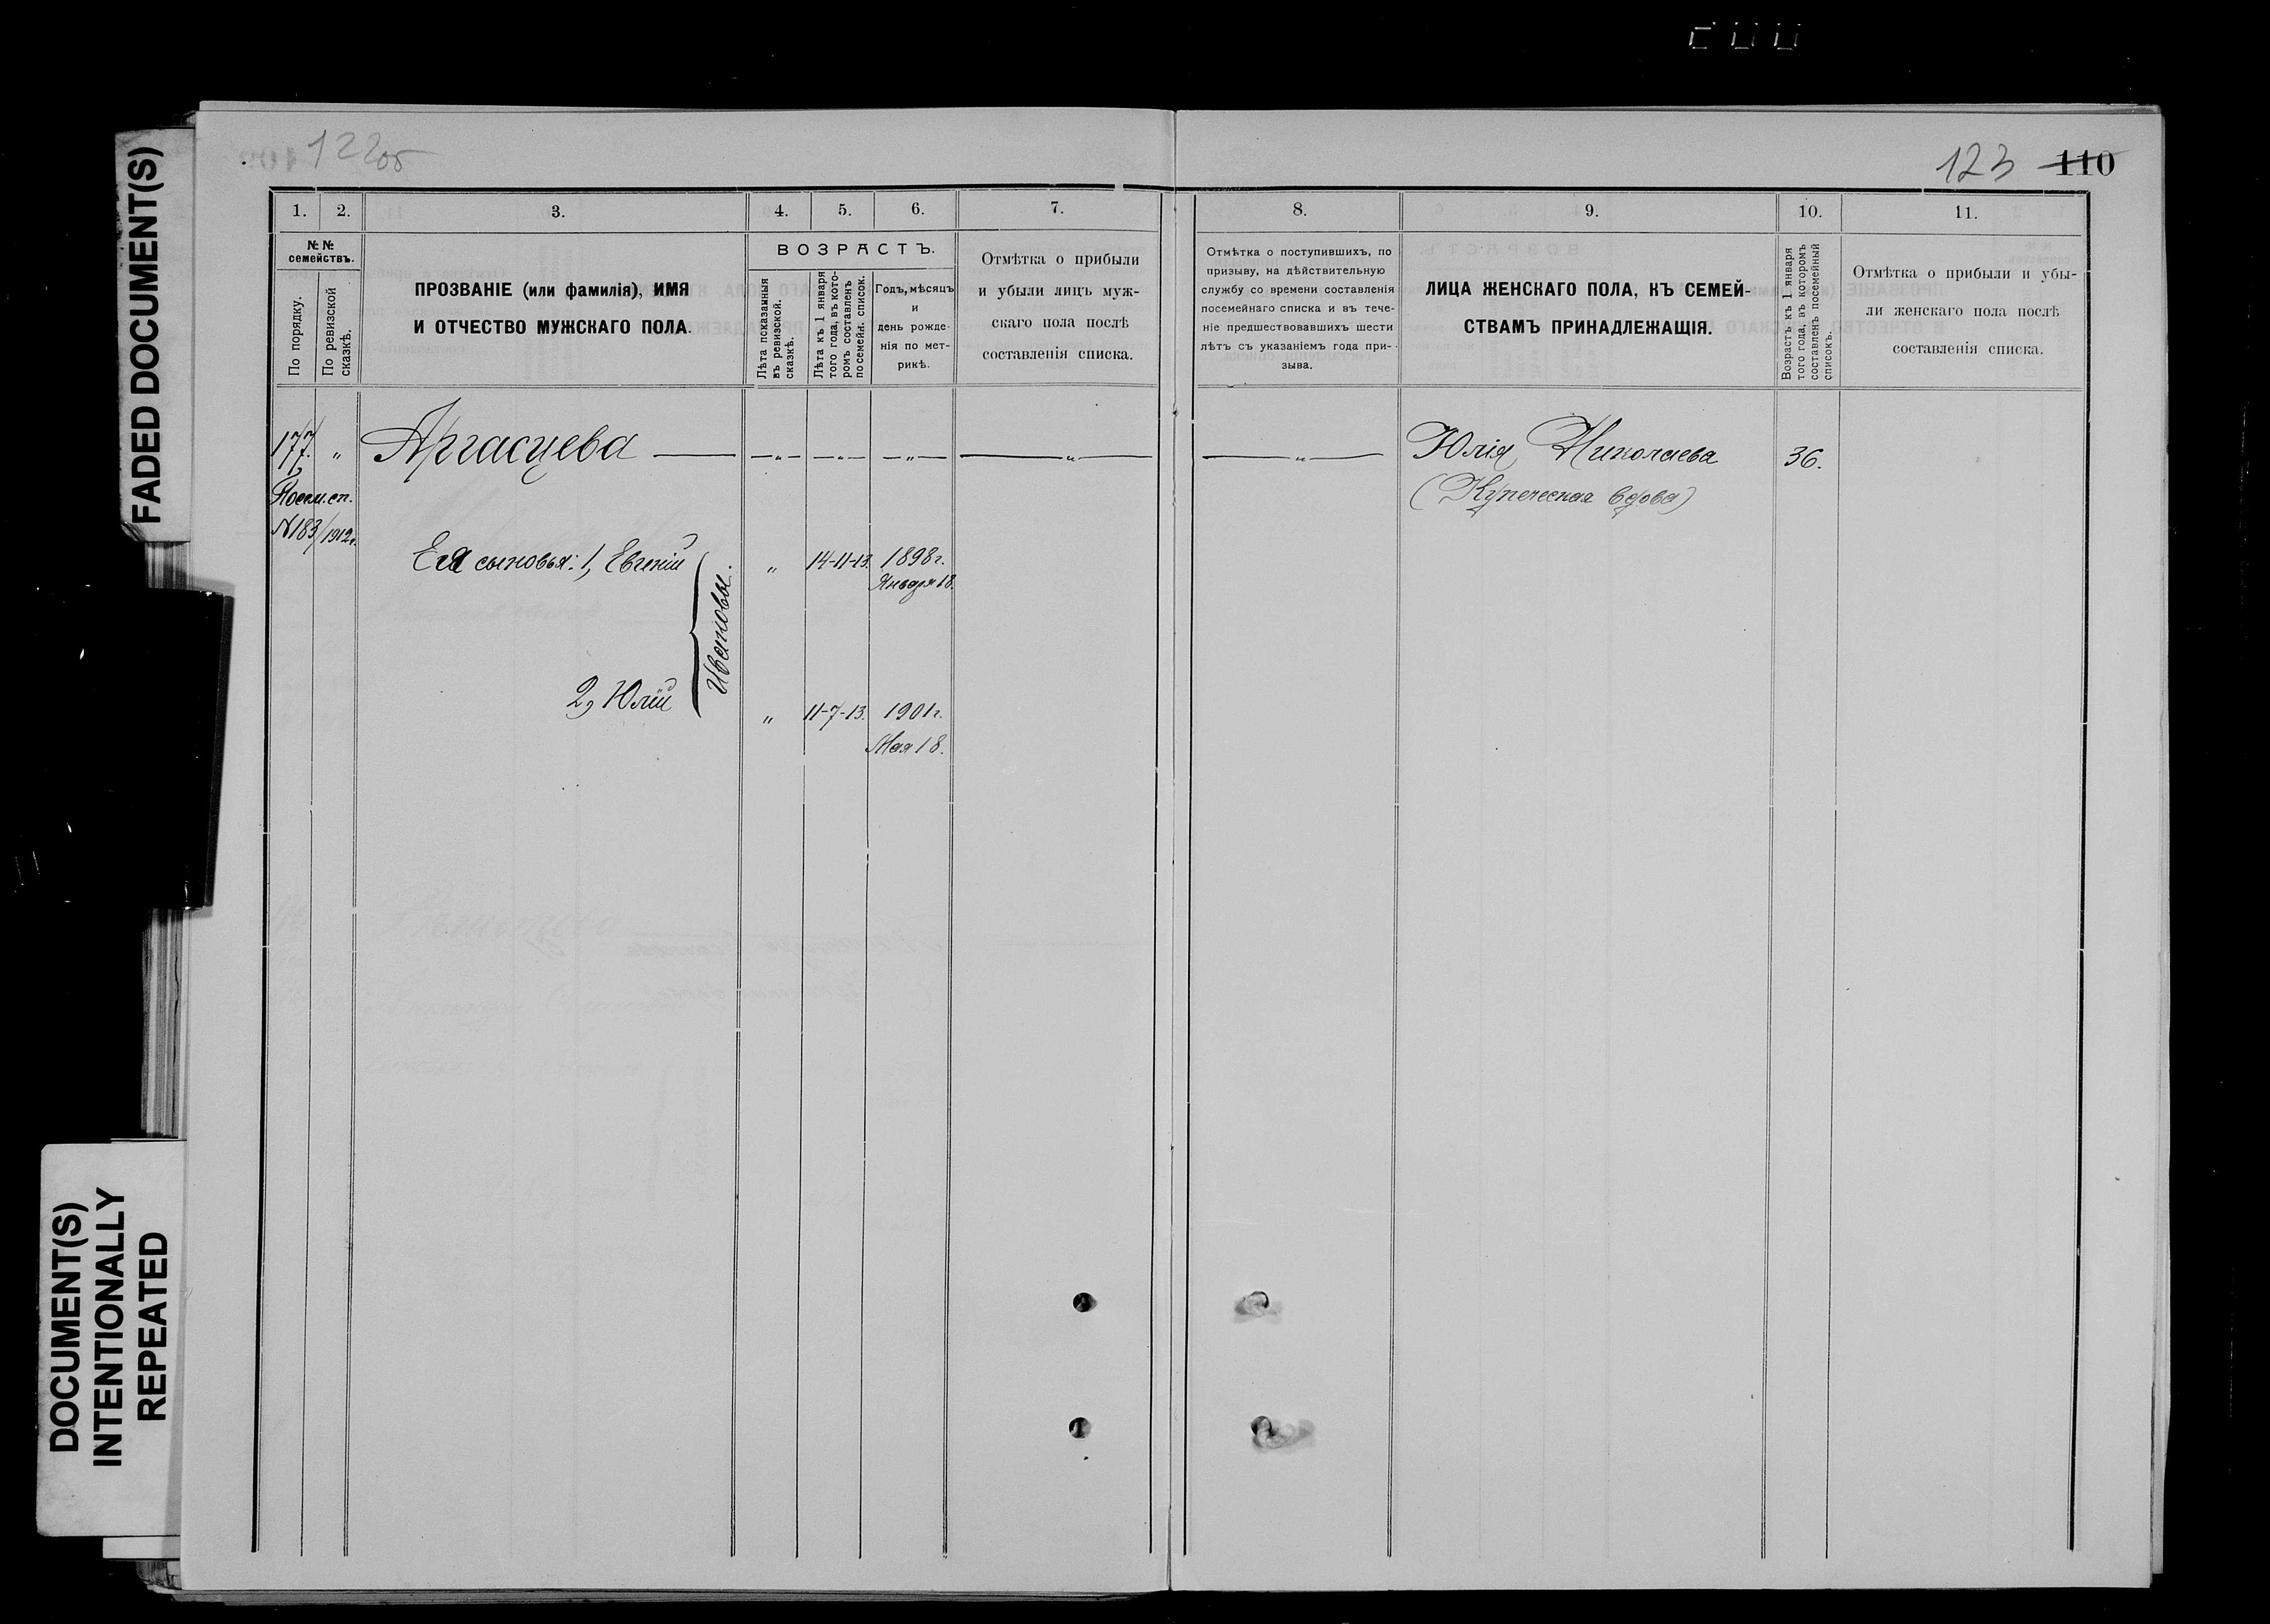 FADED DOCUMENT(S)
DOCUMENT(S)
INTENTIONALLY
REPEATED
122об
123 110
1. 2. 3. 4. 5. 6. 7.
№ №
семействъ.
По порядку.
По ревизской
сказкѣ.
ПРОЗВАНІЕ (или фамилія), ИМЯ
И ОТЧЕСТВО МУЖСКАГО ПОЛА.
ВОЗРАСТЪ.
Лѣта показанныя
въ ревизской.
сказкѣ.
Лѣта къ 1 января
того года, въ кото-
ромъ составленъ
посемейн. список.
Годъ, мѣсяцъ
и
день рожде-
нія по мет-
рикѣ.
Отмѣтка о прибыли
и убыли лицъ муж-
скаго пола послѣ
составленія списка.
8. 9. 10. 11.
Отмѣтка о поступившихъ, по
призыву, на дѣйствительную
службу со времени составленія
посемейнаго списка и въ тече-
ніе предшествовавшихъ шести
лѣтъ съ указаніемъ года при-
зыва.
ЛИЦА ЖЕНСКАГО ПОЛА, КЪ СЕМЕЙ-
СТВАМЪ ПРИНАДЛЕЖАЩІЯ.
Возрастъ къ 1 января
того года, въ которомъ
составленъ посемейный
списокъ.
Отмѣтка о прибыли и убы-
ли женскаго пола послѣ
составленія списка.
177. „ Аргасцева — — „ — — „ — — „ — — „ — — „ — Юлія Николаева 36.
(Купеческая вдова)
Посем. сп.
№183/1912г.
Ея сыновья: 1, Евгеній „ 14-11-13. 1898г.
Января 18.
Ивановы.
2, Юлій „ 11-7-13. 1901г.
Мая 18.